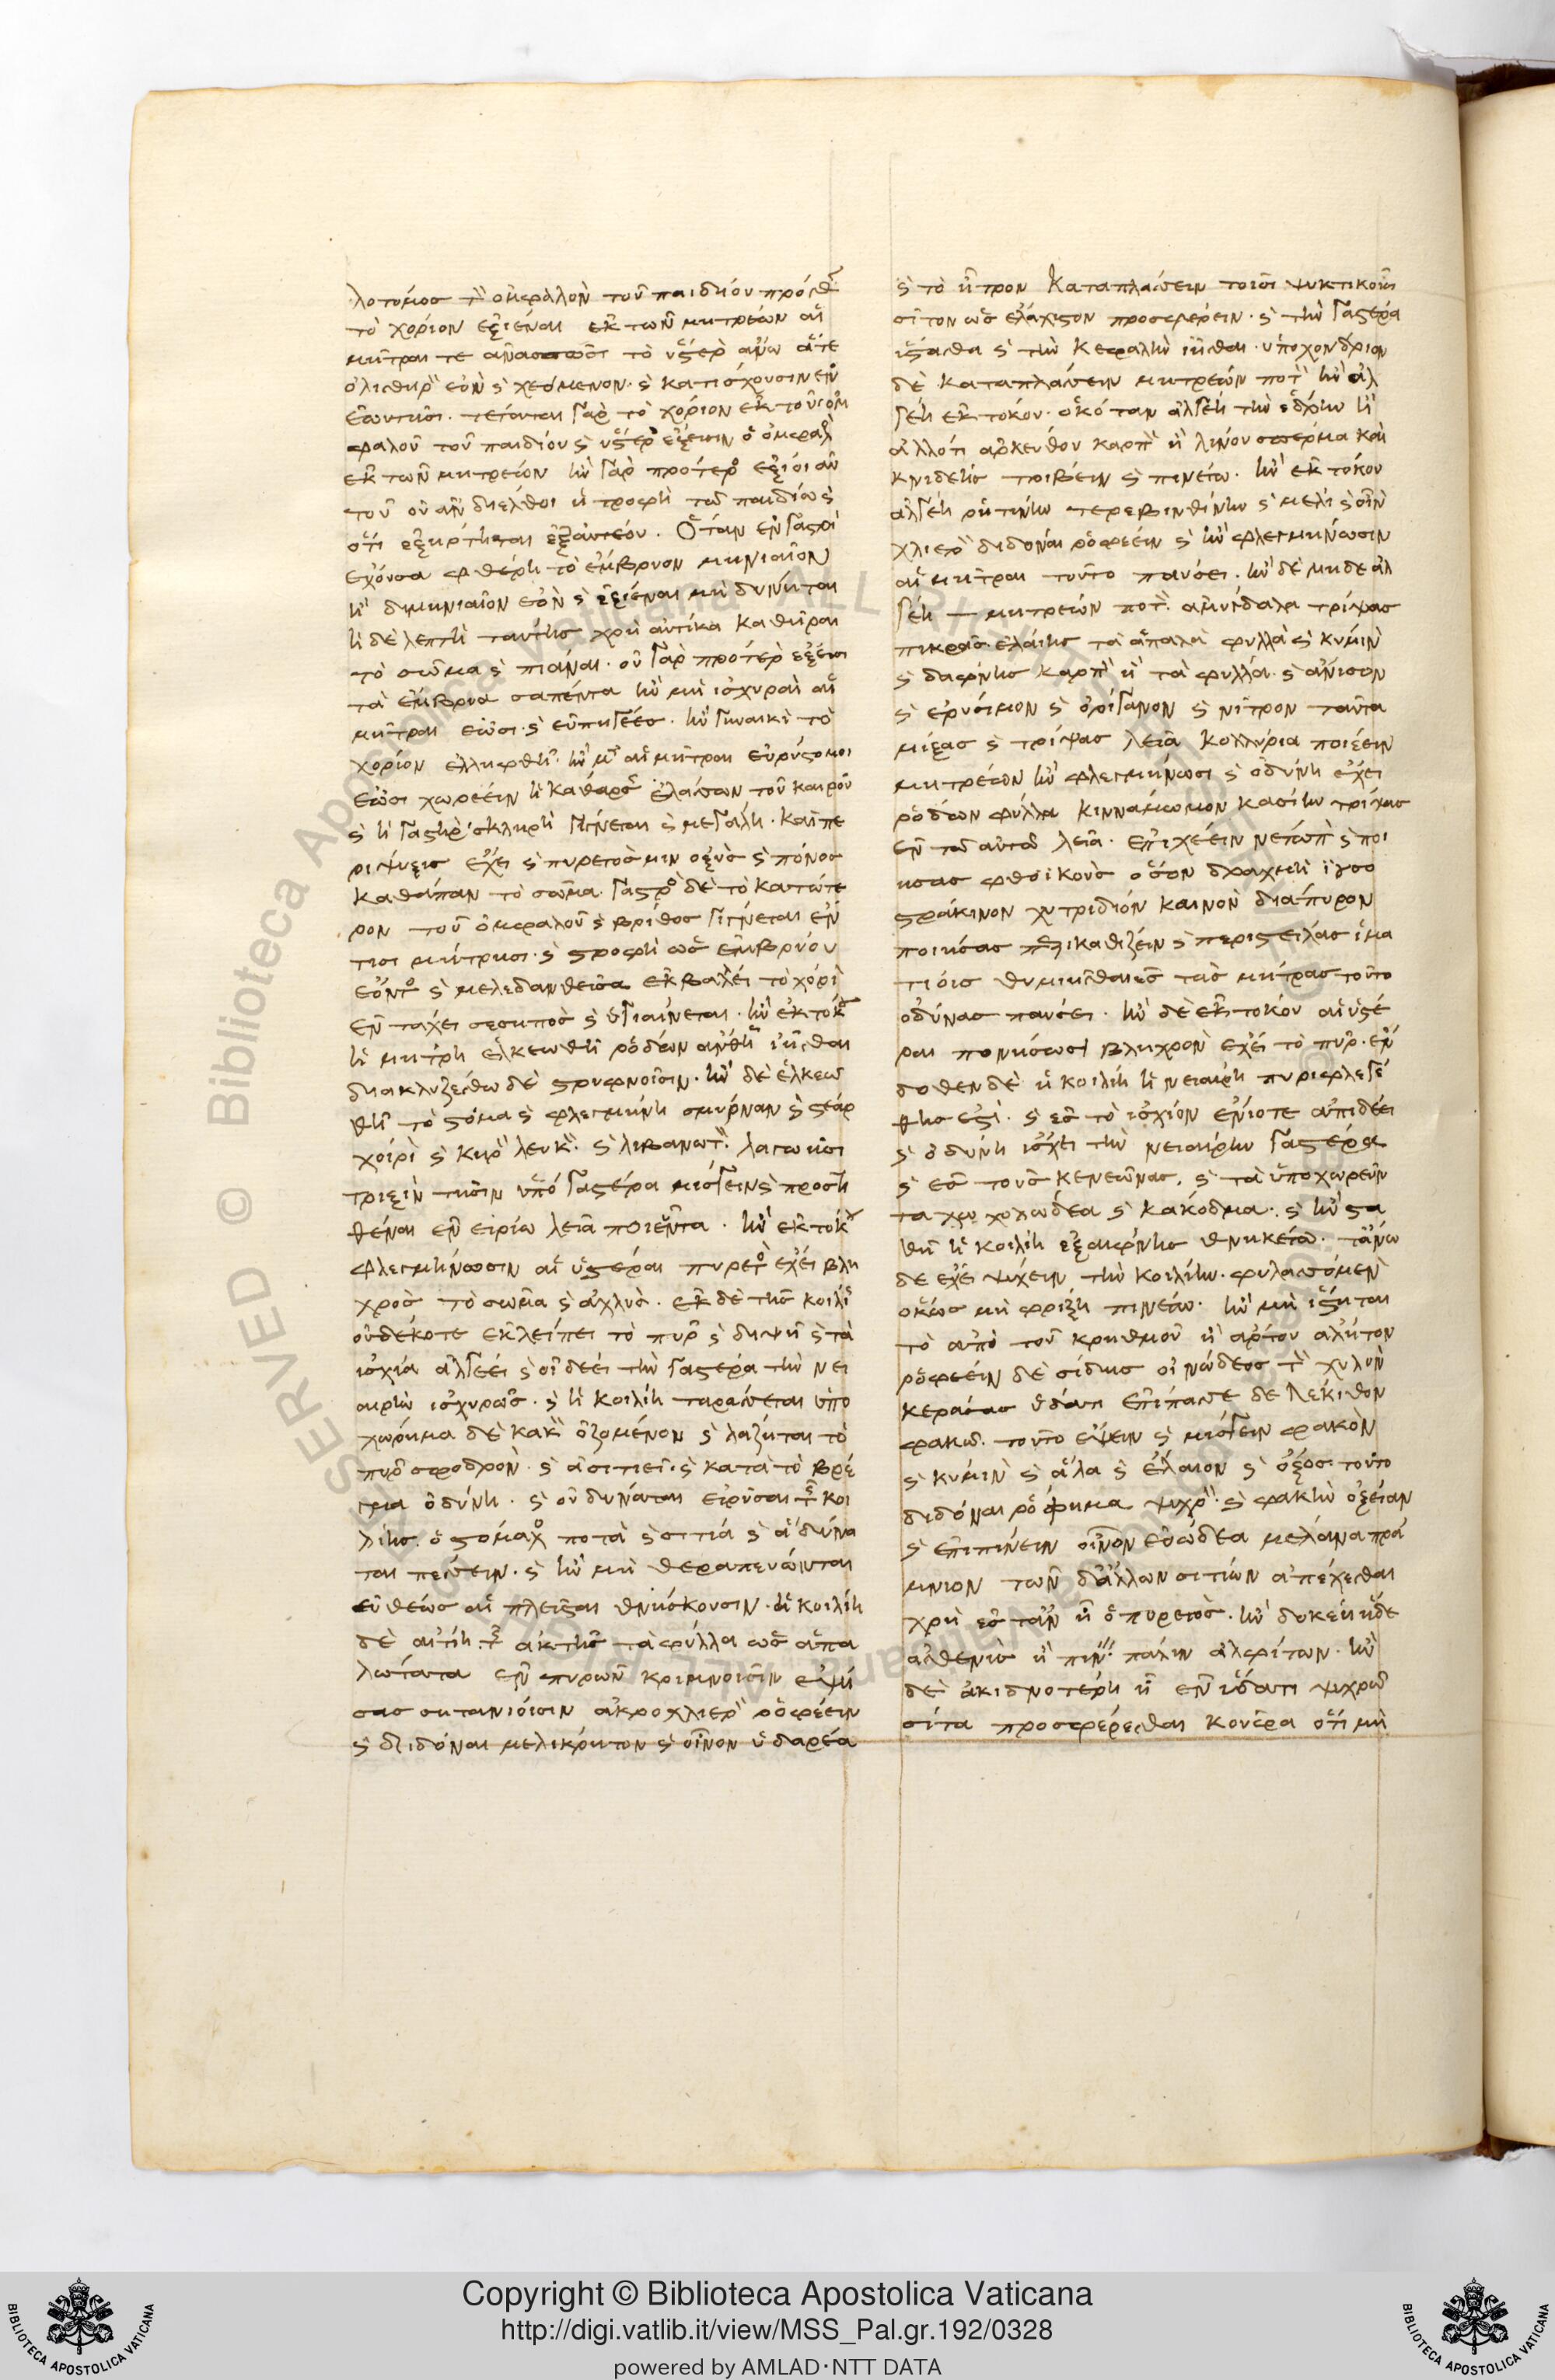 λοτόμος τὸν ὀμφαλὸν τοῦ παιδίου πρόσθεν
τὸ χορίον ἐξιέναι ἐκ τῶν μητρέων αἱ
μῆτραί τε ἀνασπῶσι τὸ ὕστερον ἄνω ἅτε
ὀλισθηρὸν ἐὸν καὶ χεόμενον. καὶ κατισχουσιν ἐν
ἑωυτῆσι. τείνεται γὰρ τὸ χορίον ἐκ τοῦ ὀμ
φαλοῦ τοῦ παιδίου καὶ ὕστερον ἔξεισιν ὁ ὀμφαλὸς
ἐκ τῶν μητρέων ἢν γὰρ πρότερος ἐξίοι ἂν
τοῦ οὐκ ἂν διέλθοι ἡ τροφὴ τῷ παιδίῳ καὶ
ὅτι ἐξήρτηται ἐξ αὐτέου. Ὅταν ἐν γαστρὶ
ἔχουσα φθείρῃ τὸ ἔμβρυον μηνιαῖον
ἢ διμηνιαῖον ἐὸν καὶ ἐξιέναι μὴ δύνηται
ἡ δὲ λεπτὴ ταύτης χρὴ αὐτίκα καθῆραι
τὸ σῶμα καὶ πιᾶναι. οὐ γὰρ πρότερον ἔξεισι
τὰ ἔμβρυα σαπέντα ἢν μὴ ἰσχυραὶ αἱ
μῆτραι ἔωσι. καὶ εὐπηγέες. ἢν γυναικὶ τὸ
χορίον ἐλλειφθῇ. ἢν μὲν αἱ μῆτραι εὐρύστομοι
ἔωσι χωρέειν ἡ κάθαρσις ἐλάσσων τοῦ καιροῦ
καὶ ἡ γαστὴρ σκληρὴ γίγνεται καὶ μεγάλη. καὶ πε
ρίψυξις ἔχει καὶ πυρετός μιν ὀξὺς καὶ πόνος
καθάπαν τὸ σῶμα. γαστρὸς δὲ τὸ κατώτε
ρον τοῦ ὀμφαλοῦ καὶ βρίθος γίγνεται ἐν
τῇσι μήτρῃσι. καὶ στροφὴ ὡς ἐμβρύου
ἐόντος καὶ μελεδανθεῖσα ἐκβαλέει τὸ χορίον
ἐν τάχει σεσηπὸς καὶ ὑγιαίνεται. ἢν ἐκ τόκου
ἡ μήτρη ἑλκωθῇ ῥόδων ἄνθει ἰῆσθαι
διακλυζέσθω δὲ στρυφνοῖσιν. ἢν δὲ ἑλκω
θῇ τὸ στόμα καὶ φλεγμήνῃ σμύρναν καὶ στέαρ
χοίριον καὶ κηρὸν λευκὸν. καὶ λιβανωτὸν. λαγωῇσι
τριξὶν τῇσιν ὑπὸ γαστέρα μίσγειν καὶ προστι
θέναι ἐν εἰρίῳ λεῖα ποιεῦντα. ἢν ἐκ τόκου
φλεγμήνωσιν αἱ ὑστέραι πυρετὸς ἔχει βλη
χρὸς τὸ σῶμα καὶ ἀχλύς. ἐκ δὲ τῆς κοιλίης
οὐδέκοτε ἐκλείπει τὸ πῦρ καὶ διψῇ καὶ τὰ
ἰσχία ἀλγέει καὶ οἰδέει τὴν γαστέρα τὴν νει
αιρὴν ἰσχυρῶς. καὶ ἡ κοιλίη ταράσσεται ὑπο
χώρημα δὲ κακὸν ὀζόμενον καὶ λάζηται τὸ
πῦρ σφοδρὸν. καὶ ἀσιτεῖ. καὶ κατὰ τὸ βρέ
γμα ὀδύνη. καὶ οὐ δύναται εἰρύσαι τῆς κοι
λίης ὁ στόμαχος ποτὰ καὶ σιτία καὶ ἀδύνα
ται πέσσειν. καὶ ἢν μὴ θεραπευόωνται
εὐθέως αἱ πλεῖσται θνήσκουσιν. ἡ κοιλίη
δὲ αἰτίη τῆς ἀκτῆς τὰ φύλλα ὡς ἁπα
λώτατα ἐν πυρῶν κρίμνοισιν ἑψή
σας σητανίοισιν ἀκροχλίερον ῥοφέειν
καὶ διδόναι μελίκρητον καὶ οἶνον ὑδαρέα
καὶ τὸ ἦτρον Καταπλάσσειν τοῖσι ψυκτικοῖσι
σῖτον ὡς ἐλάχιστον προσφέρειν. καὶ τὴν γαστέρα
ἵστασθαι καὶ τὴν κεφαλὴν ἰῆσθαι. ὑποχόνδριον
δὲ καταπλάσσειν μητρέων ποτὸν ἢν ἀλ
γέῃ ἐκ τόκου. ὁκόταν ἀλγέῃ τὴν ἕδρην ἢ
ἄλλο τι ἀρκεύθου καρπὸν ἢ λίνου σπέρμα καὶ
κνίδης τρίβειν καὶ πινέτω. ἢν ἐκ τόκου
ἀλγέῃ ῥητίνην τερεβινθίνην καὶ μέλι καὶ οἶνον
χλιερὸν διδόναι ῥοφέειν καὶ ἢν φλεγμήνωσιν
αἱ μῆτραι τοῦτο παύσει. ἢν δὲ μηδὲ ἀλ
γέῃ — μητρέων ποτὸν. ἀμύγδαλα τρίψας
πικρὰς. ἐλαίης τὰ ἁπαλὰ φύλλα καὶ κύμινον
καὶ δάφνης καρπὸν ἢ τὰ φύλλα. καὶ ἄνισον
καὶ ἐρύσιμον καὶ ὀρίγανον καὶ νίτρον ταῦτα
μίξας καὶ τρίψας λεῖα κολλύρια ποιέειν
μητρέων ἢν φλεγμήνωσι καὶ ὀδύνη ἔχει
ῥόδων φύλλα κιννάμωμον κασίην τρίψας
ἐν τῷ αὐτῷ λεῖα. ἐπιχέειν νέτωπον καὶ ποι
ήσας φθοίσκους ὅσον δραχμὴ
στράκινον χυτρίδιον καινὸν διάπυρον
ποιήσας περικαθίζειν καὶ περιστείλας ἱμα
τίοις θυμιῆσθαι ἐς τὰς μήτρας τοῦτο
ὀδύνας παύσει. ἢν δὲ ἐκ τόκου αἱ ὑστέ
ραι πονήσωσι βληχρὸν ἔχει τὸ πῦρ. ἔν
δοθεν δὲ ἡ κοιλίη ἡ νειαίρη πυριφλεγέ
θης ἐστὶ. καὶ ἐς τὸ ἰσχίον ἐνίοτε ἀπιδέει
καὶ ὀδύνη ἴσχει τὴν νειαίρην γαστέρα
καὶ ἐς τοὺς κενεῶνας. καὶ τὰ ὑποχωρεῦν
τα χολώδεα καὶ κάκοδμα. καὶ ἢν στα
θῇ ἡ κοιλίη ἐξαίφνης θνηκέτω. τἄνω
δὲ ἔχει ψύχειν τὴν κοιλίην. φυλασσόμενον
ὅκως μὴ φρίξῃ πινέτω. ἢν μὴ ἵστηται
τὸ ἀπὸ τοῦ κρήθμου ἢ ἄρτου ἀλήτον
ῥοφέειν δὲ σίδης οἰνώδεος τὸν χυλὸν
κεράσας ὕδατι ἐπίπασσε δὲ λέκιθον
φακῶν. τοῦτο ἕψειν καὶ μίσγειν φακὸν
καὶ κύμινον καὶ ἅλα καὶ ἔλαιον καὶ ὄξος τοῦτο
διδόναι ῥόφημα ψυχρὸν. καὶ φακῆν ὀξεῖαν
καὶ ἐπιπίνειν οἶνον εὐώδεα μέλανα πρά
μνιον τῶν δ' ἄλλων σιτίων ἀπέχεσθαι
χρὴ ἔστ' ἂν ᾖ ὁ πυρετός. ἢν δοκέῃ ἥδε
ἀσθενὶς ἢ πίνῃ πάλιν ἀλφίτων. ἢν
δὲ ἀκιδνοτέρη ᾖ ἐν ὕδατι ψυχρῷ
σῖτα προσφέρεσθαι κοῦφα ὅτι μὴ
Copyright © Biblioteca Apostolica Vaticana
http://digi.vatlib.it/view/MSS_Pal.gr.192/0328
powered by AMLAD·NTT DATA